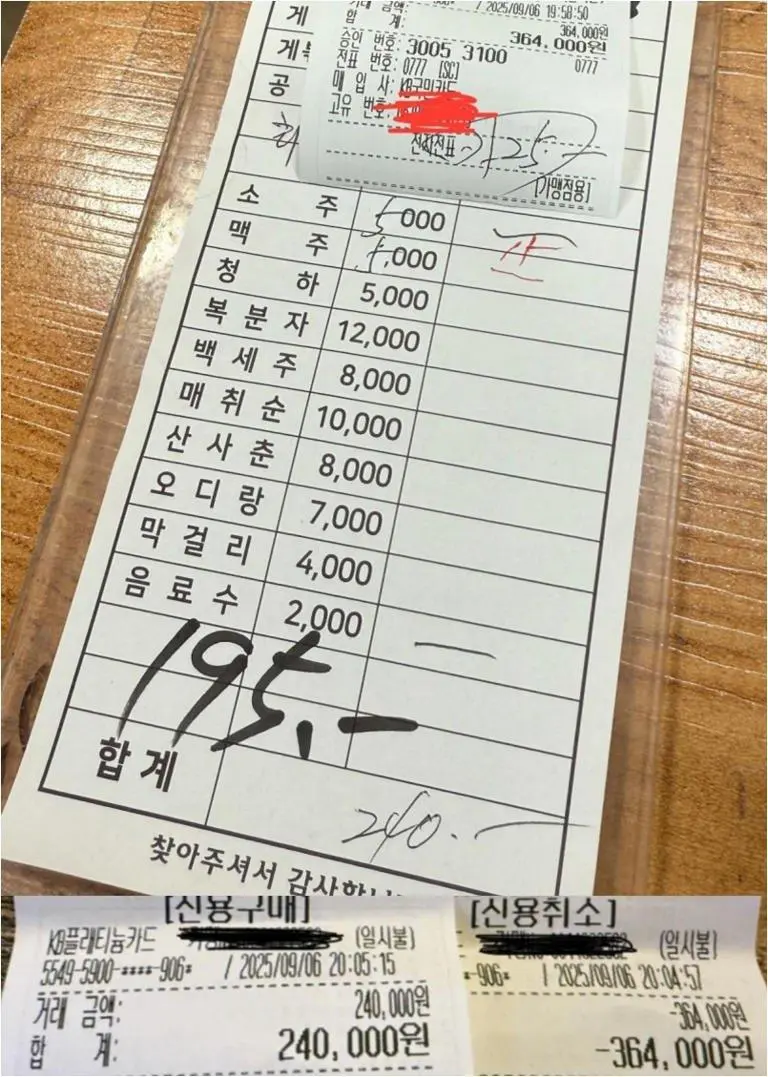 게
게
공
거래 금액: / 2025/09/06 19:58:50
364,000원
합 계: 364,000원
승인 번호: 3005 3100
전표 번호: 0777 [SC] 0777
매 입 사: KB국민카드
고유 번호:
전자전표 125.-
[가맹점용]
소 주 5000 一
맥 주 5,000
청 하 5,000
복 분 자 12,000
백 세 주 8,000
매 취 순 10,000
산 사 춘 8,000
오 디 랑 7,000
막 걸 리 4,000
음 료 수 2,000 一
195.-
합 계
240.-
찾아주셔서 감사합니
[신용구매]
KB플래티늄카드 (일시불)
5549-5900-****-906* / 2025/09/06 20:05:15
거래 금액: 240,000원
합 계: 240,000원
[신용취소]
(일시불)
*-906* / 2025/09/06 20:04:57
-364,000원
-364,000원